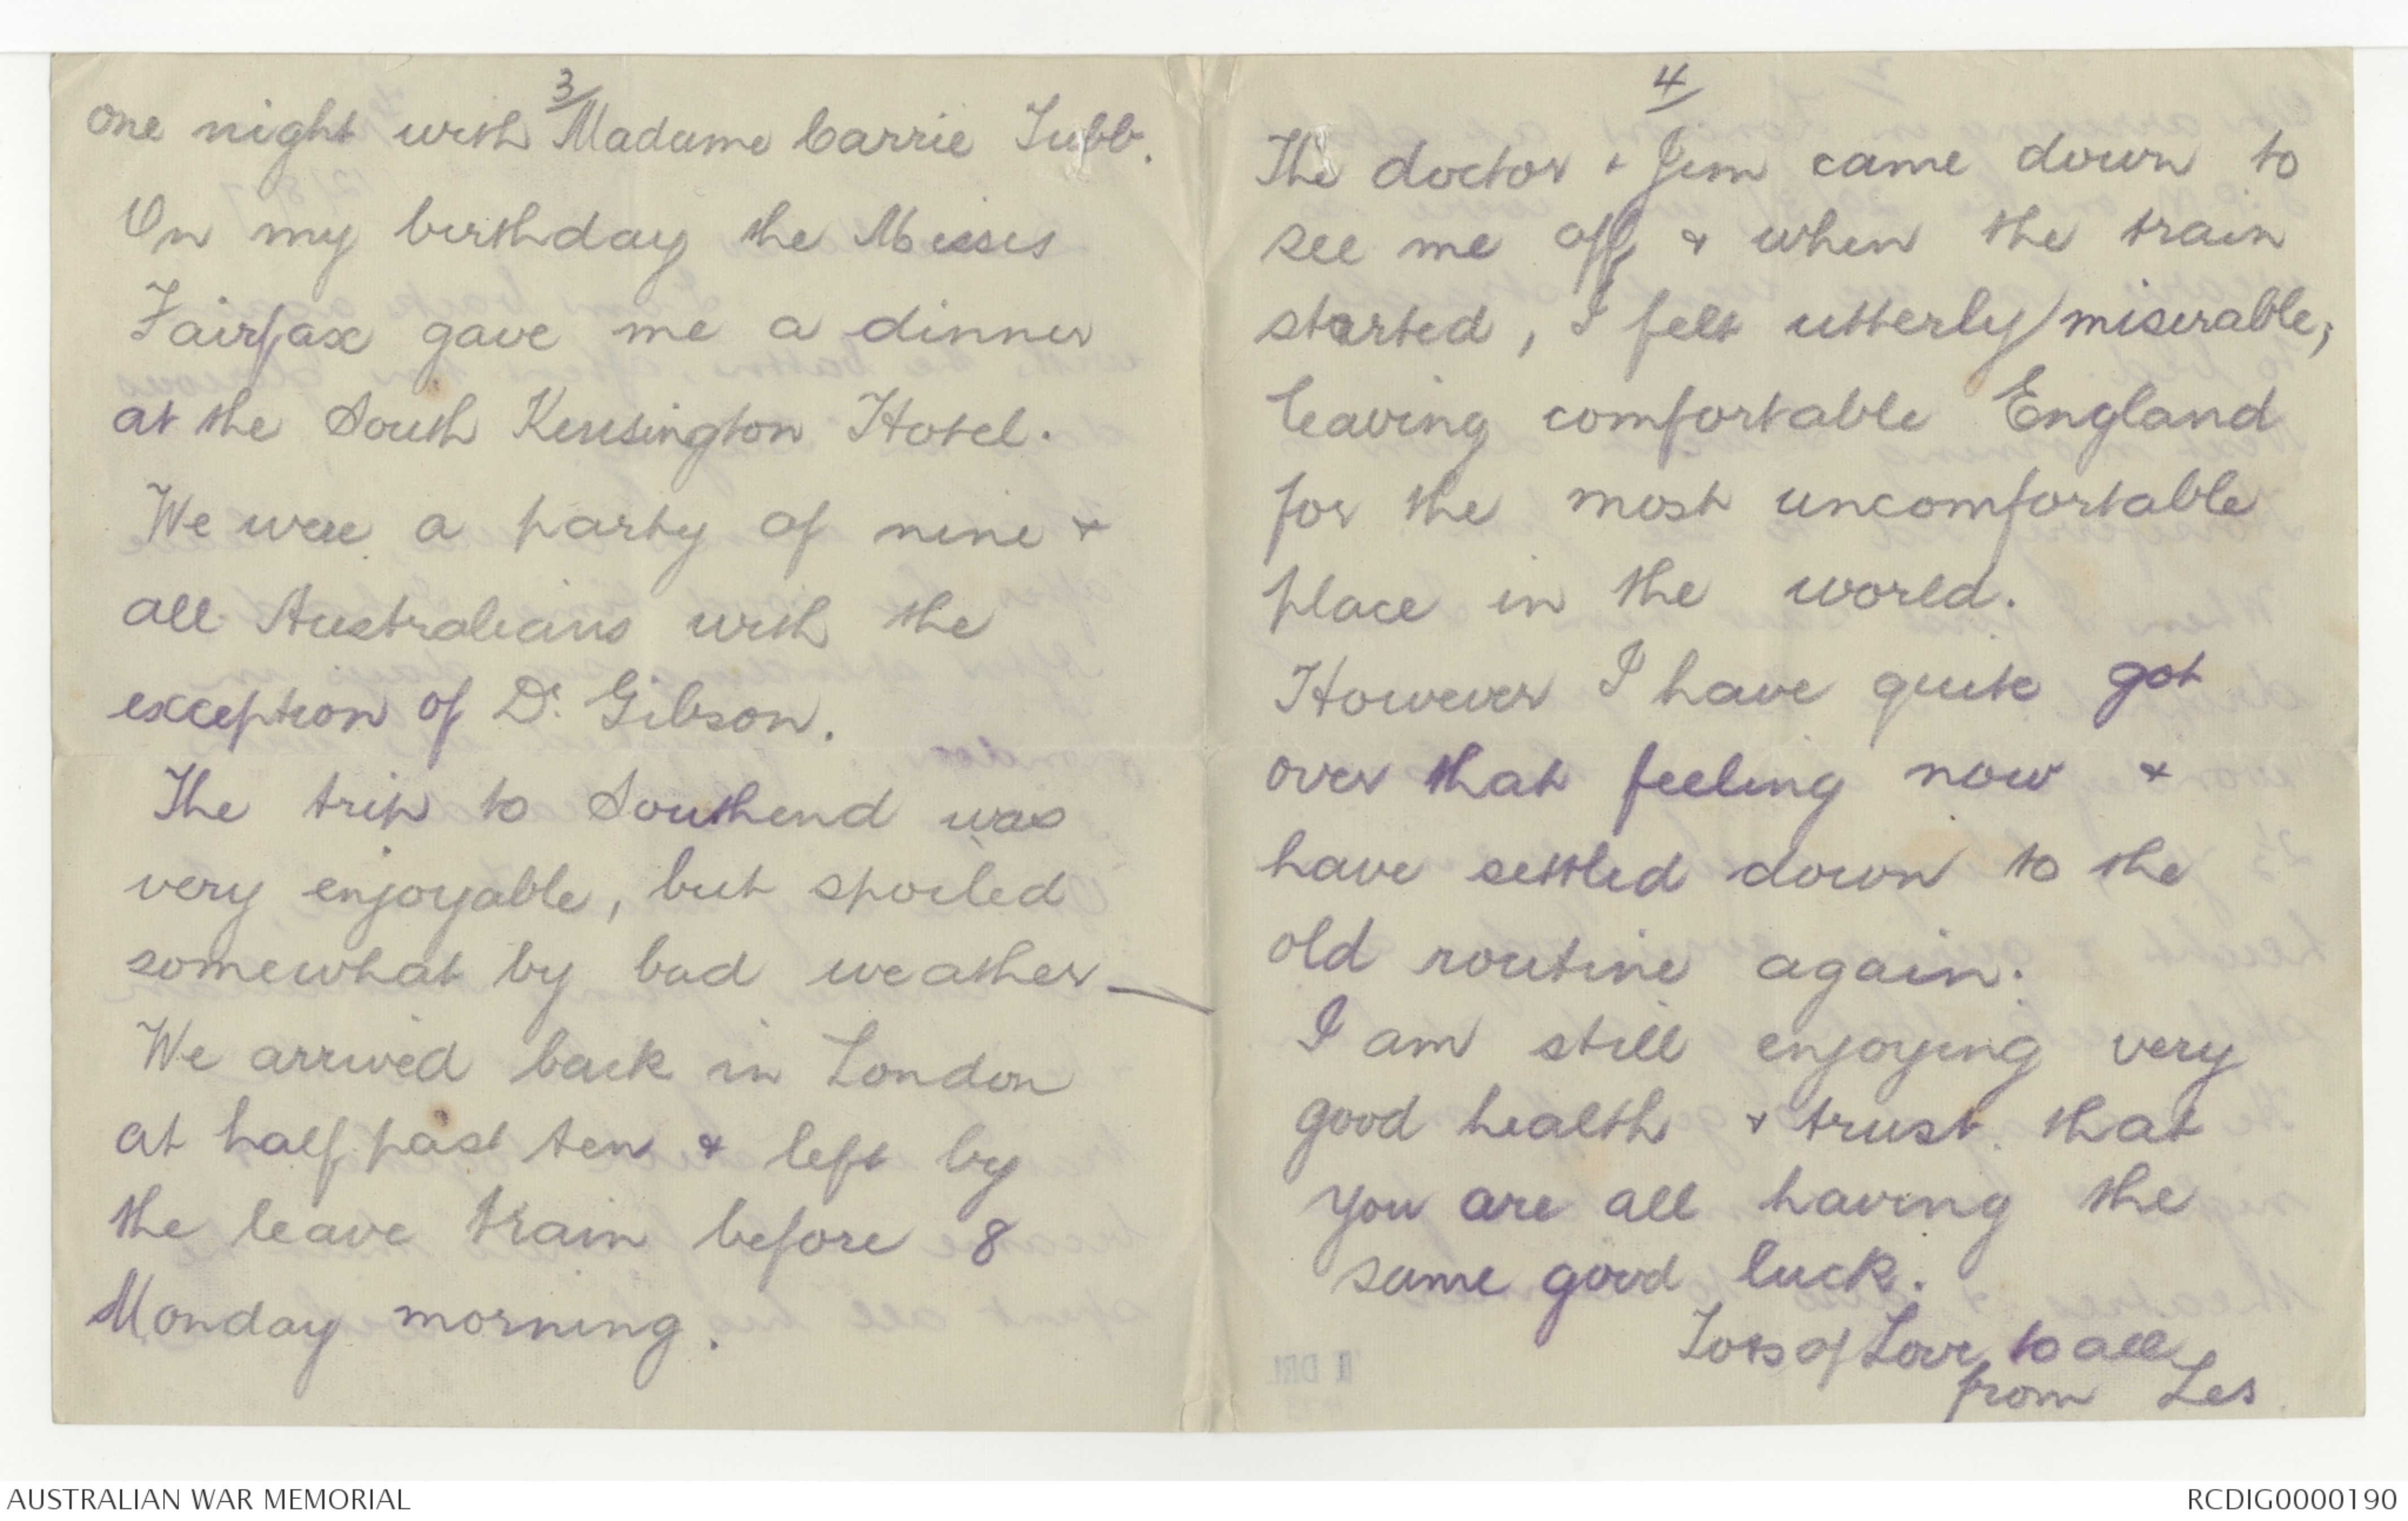 3/
one night with Madame Carrie Tubb.
On my birthday the Misses
Fairfax gave me a dinner
at the South Kensington Hotel.
We were a party of nine &
all Australians with the
exception of Dr. Gibson.
The trip to Southend was
very enjoyable, but spoiled
somewhat by bad weather —
We arrived back in London
at half past ten & left by
the leave train before 8
Monday morning.
4/
The doctor & Jim came down to
see me off & when the train
started, I felt utterly miserable,
leaving comfortable England
for the most uncomfortable
place in the world.
However I have quite got
over that feeling now &
have settled down to the
old routine again.
I am still enjoying very
good health & trust that
you are all having the
same good luck.
Lots of Love to all
from Les
AUSTRALIAN WAR MEMORIAL
RCDIG0000190